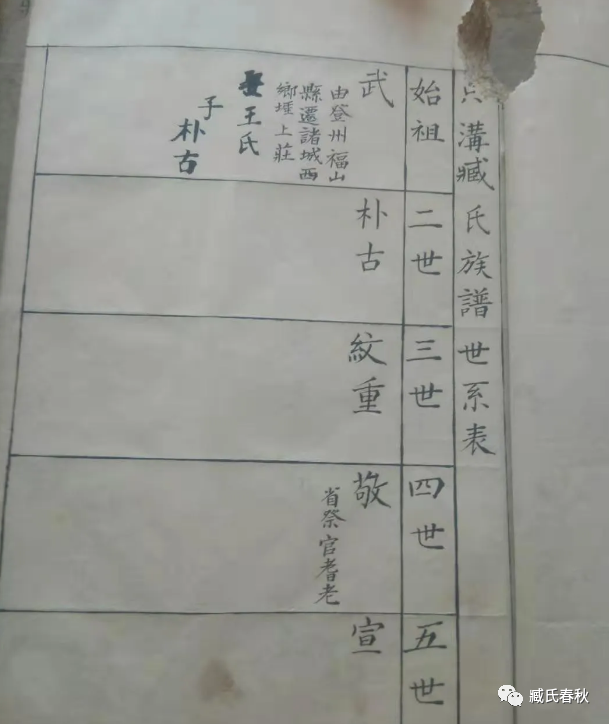 溝臧氏族譜世系表
始祖
武
由登州福山
縣遷諸城西
鄉上莊
王氏
子
朴古
二世
朴古
三世
紋重
四世
敬
省祭官耆老
五世
宣
臧氏春秋